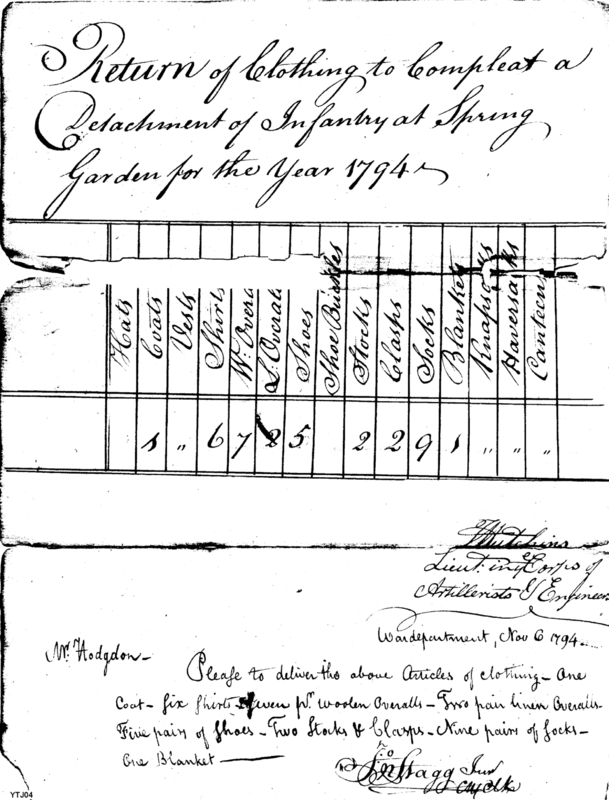 Return of Clothing to Compleat a
Detachment of Infantry at Spring
Garden for the Year 1794
Hats Coats Vests Shirts W. Overa L. Overal Shoes Shoe Buckles Stocks Clasps Socks Blankets Knapsacks Haversacks Canteens
1 " 6 7 2 5 2 2 9 1 " " "
Hutchins
Lieut. in ye Corps of
Artillerists & Engineer
Wardepartment, Nov 6 1794
Mr. Hodgdon
Please to deliver the above Articles of clothing - One
Coat - Six Shirts - Seven pr. woolen Overalls - Two pair linen Overalls
Five pairs of Shoes - Two Stocks & Clasps - Nine pairs of Socks -
One Blanket
Jno Stagg Junr
Clk
YTJ04